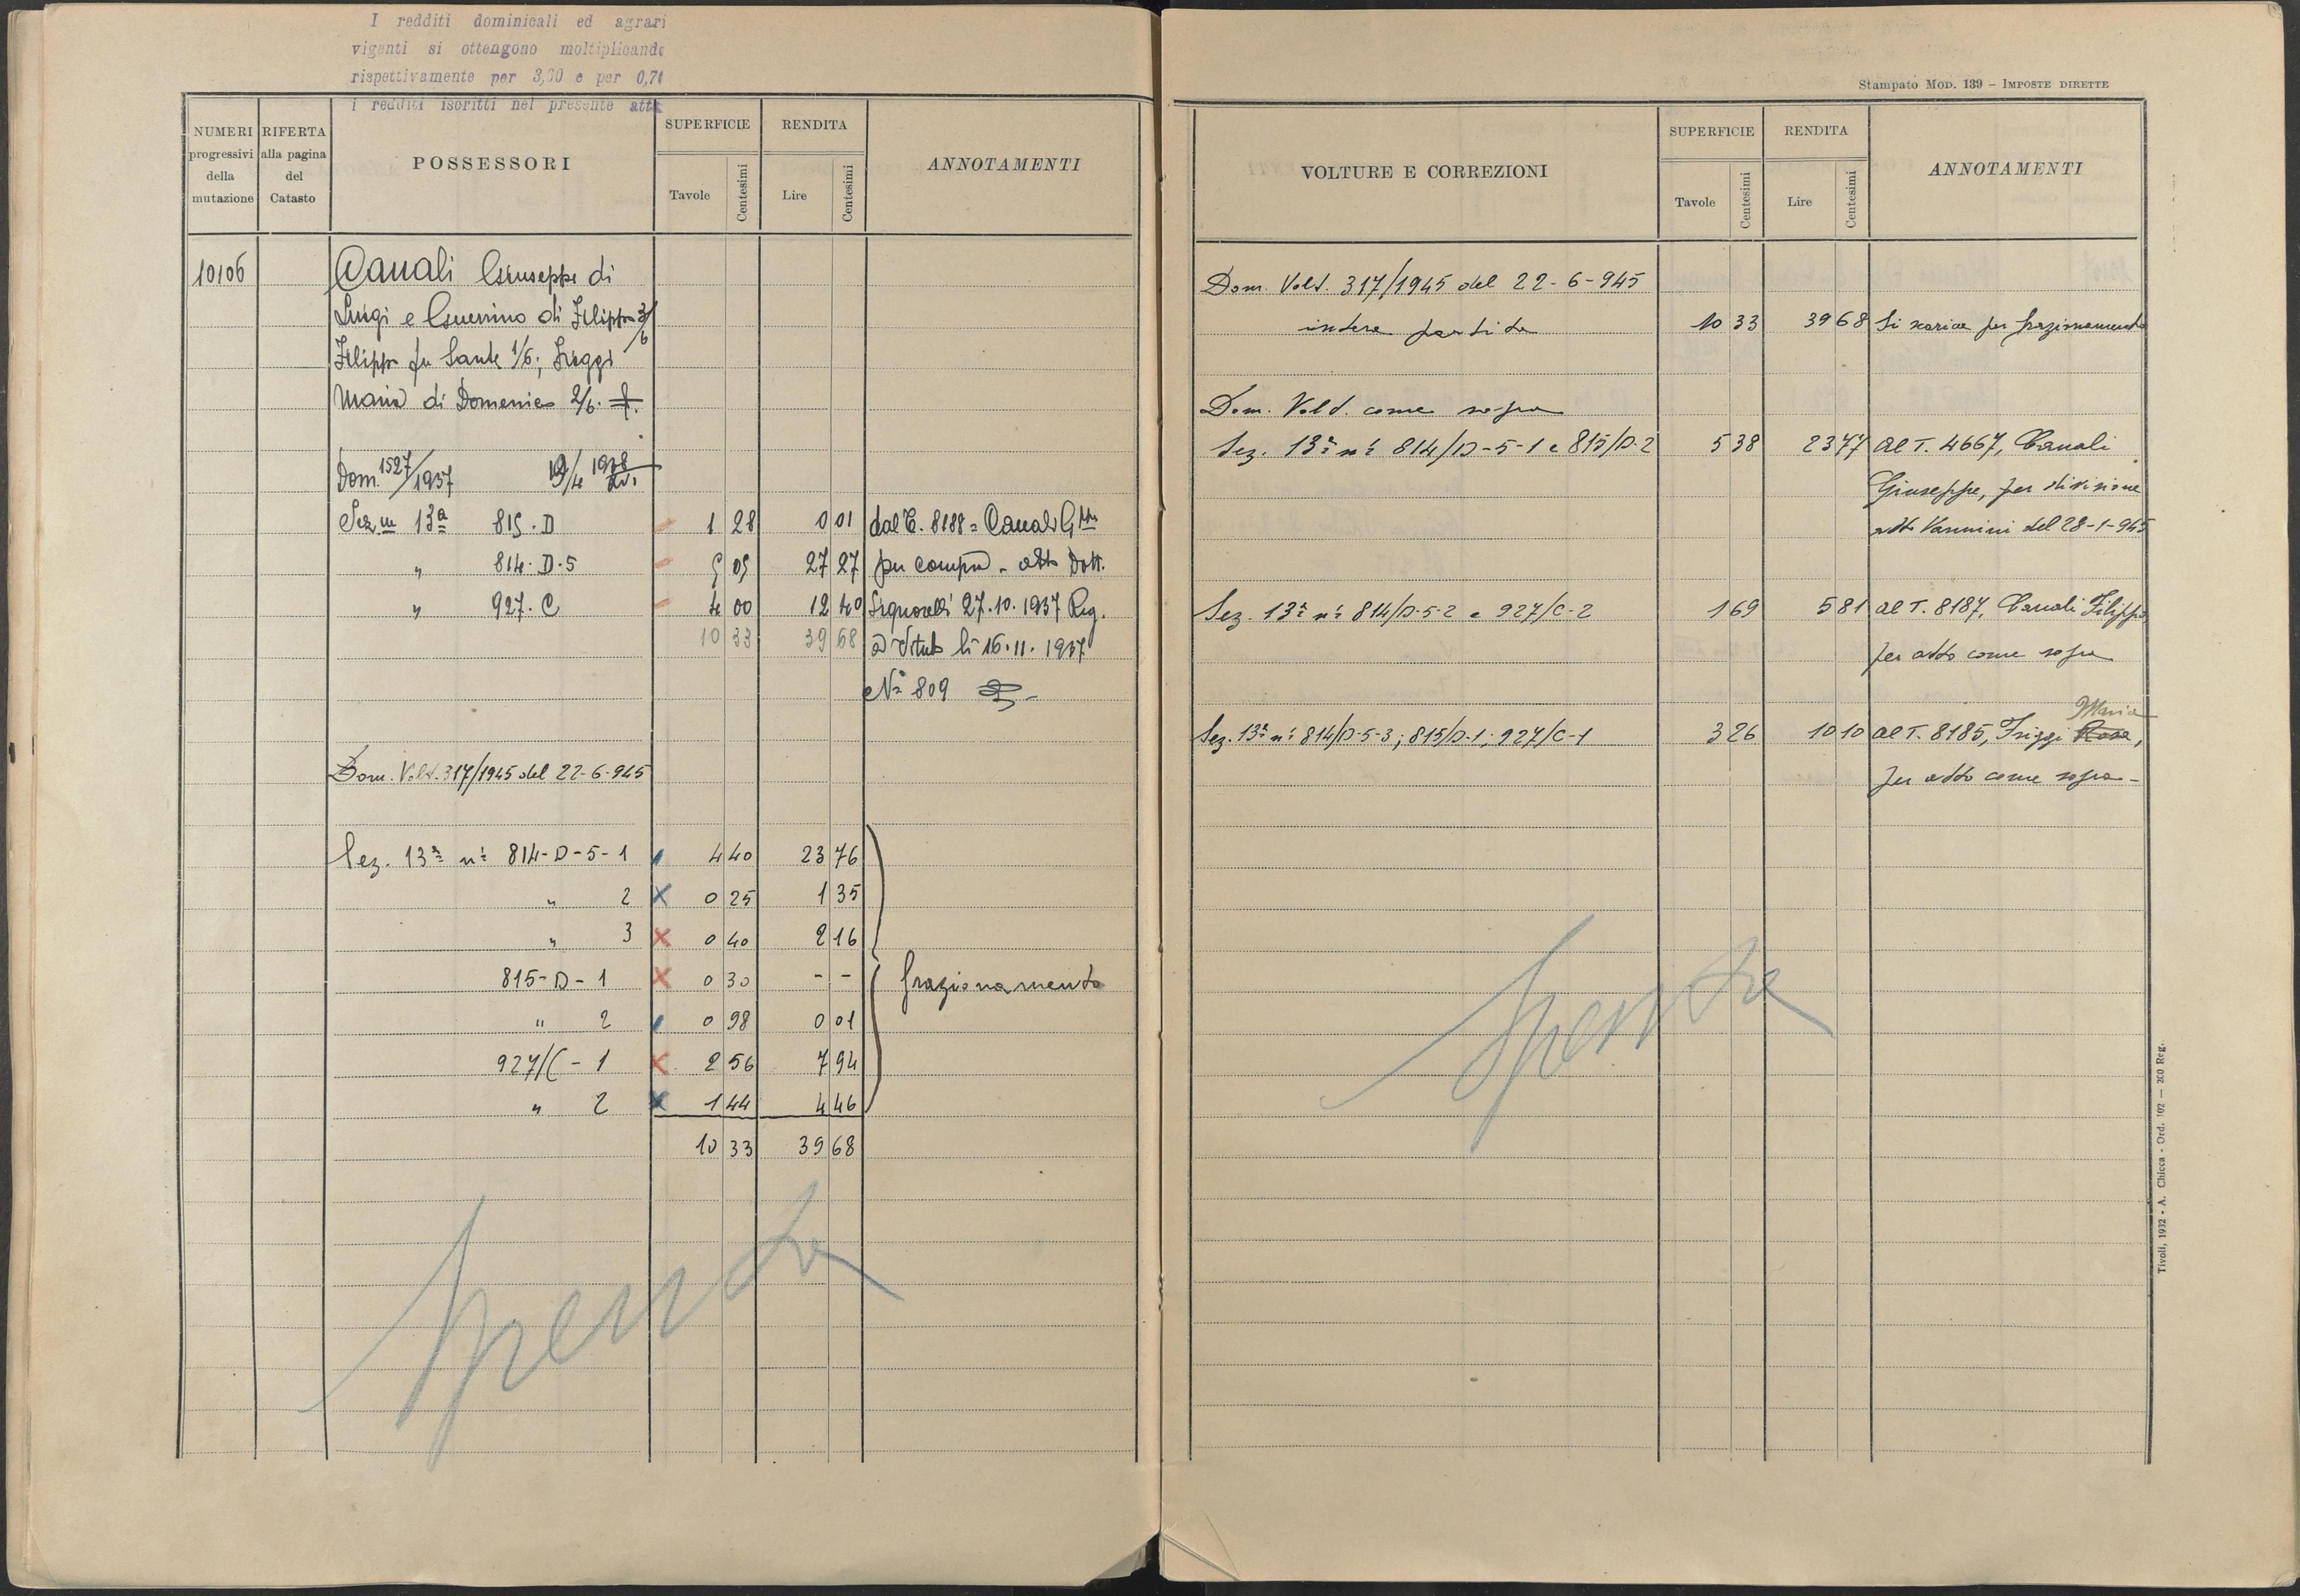 I redditi dominicali ed agrari
vigenti si ottengono moltiplicando
rispettivamente per 3,30 e per 0,70
i redditi iscritti nel presente atto
NUMERI progressivi della mutazione
RIFERTA alla pagina del Catasto
POSSESSORI
SUPERFICIE
Tavole Centesimi
RENDITA
Lire Centesimi
ANNOTAMENTI
10106 Canali Giuseppe di
Luigi e Guerrino di Filippo 3/6
Filippo fu Sante 1/6; Friggi
Maria di Domenico 2/6.
Dom. 1527/1937 19/4 1938
Sez.ne 13ª 815.D 1 28 0 01 dal T. 8188 = Canali G.
" 814.D.5 5 05 27 27 per compra - atto Dott.
" 927.C 4 00 12 40 Signorelli 27.10.1937 Reg.
10 33 39 68 a Vitub li 16.11.1937
N° 809
Dom. Volt. 317/1945 del 22-6-945
Sez. 13ª n¹ 814-D-5-1 4 40 23 76
" 2 0 25 1 35
" 3 0 40 2 16
815-D-1 0 30 - - frazionamento
" 2 0 98 0 01
927/C-1 2 56 7 94
" 2 1 44 4 46
10 33 39 68
Spenta
Stampato MOD. 139 - IMPOSTE DIRETTE
VOLTURE E CORREZIONI
SUPERFICIE
Tavole Centesimi
RENDITA
Lire Centesimi
ANNOTAMENTI
Dom. Volt. 317/1945 del 22-6-945
intera partita 10 33 39 68 Si scarica per frazionamento
Dom. Volt. come sopra
Sez. 13ª n¹ 814/D-5-1 e 815/D-2 5 38 23 77 al T. 4667, Canali
Giuseppe, per divisione
atto Vannini del 28-1-945
Sez. 13ª n¹ 814/D-5-2 e 927/C-2 1 69 5 81 al T. 8187, Canali Filippo
per atto come sopra
Maria
Sez. 13ª n¹ 814/D-5-3; 815/D-1; 927/C-1 3 26 10 10 al T. 8185, Friggi Rosa,
per atto come sopra -
Spenta
Tivoli, 1932 - A. Chicca - Ord. 102 — 200 Reg.